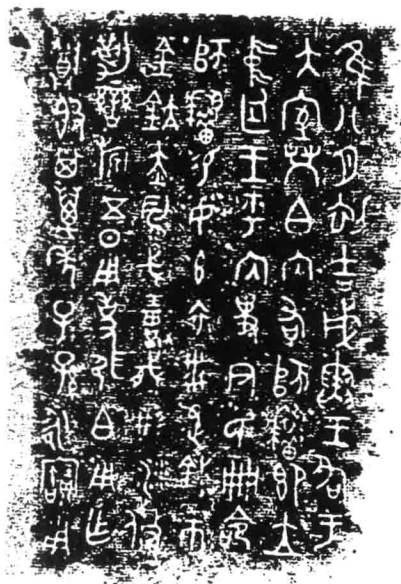 隹八月初吉戊寅王各于
大室榮白內右師耤即立
中廷王乎內史尹氏冊命
師耤易女玄衣黹屯素巿
金鈧赤舄戈琱胾彤沙攸
勒鑾旂五日用事弭白用乍
尊簋其萬年子孫永寶用